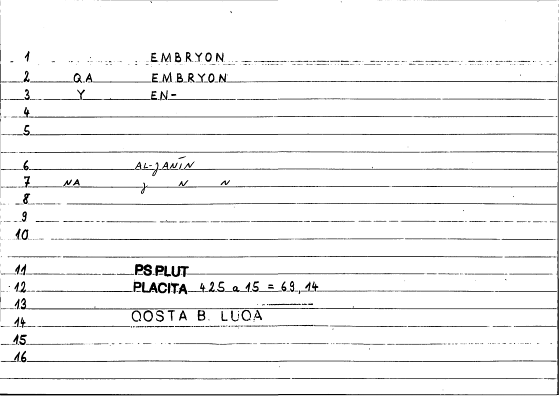 1 EMBRYON
2 QA EMBRYON
3 Y EN-
4
5
6 AL-JANĪN
7 NA j N N
8
9
10
11 PS PLUT
12 PLACITA 425 a 15 = 69,14
13
14 QOSTA B. LUQA
15
16